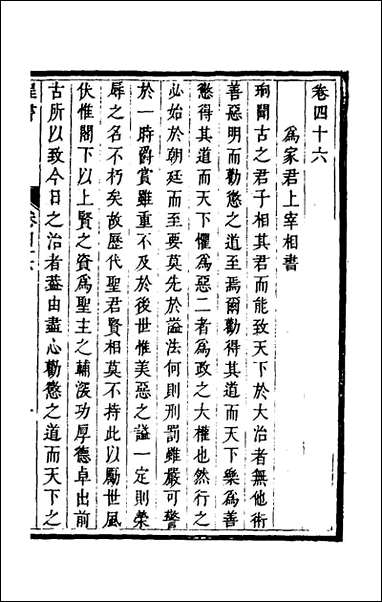 卷四十六
爲家君上宰相書
珦聞古之君子相其君而能致天下於大治者無他術
善惡明而勸懲之道至焉爾勸得其道而天下樂爲善
懲得其道而天下懼爲惡二者爲政之大權也然行之
必始於朝廷而至要莫先於諡法何則刑罰雖嚴可警
於一時爵賞雖重不及於後世惟美惡之諡一定則榮
辱之名不朽矣故歷代聖君賢相莫不持此以勵世風
伏惟閣下以上賢之資爲聖主之輔深功厚德卓出前
古所以致今日之治者蓋由盡心勸懲之道而天下之